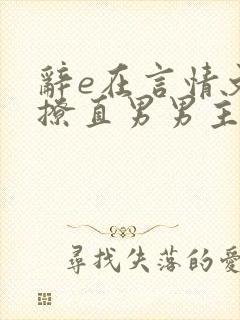 辭e在言情文
撩直男男主
尋找失落的愛